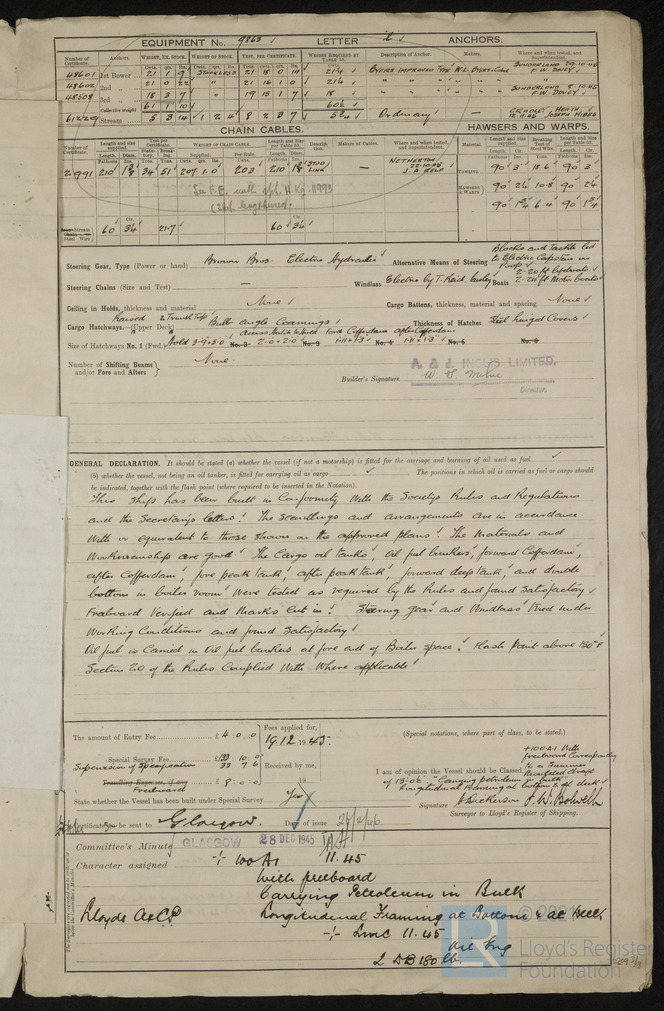 EQUIPMENT No. 9863 LETTER ANCHORS.
Number of Certificate. Anchors. WEIGHT, EX. STOCK. WEIGHT OF STOCK. TEST, PER CERTIFICATE. WEIGHT REQUIRED BY TABLE 53. Description of Anchor. Makers. Where and when tested, and Superintendent.
48601 1st Bower 21 1 9 STOCKLESS 21 18 0 14 21¼ BYERS IMPROVED TYPE W.L. BYERS SUNDERLAND 29.10.45 F.W. DOVEY
48602 2nd " 21 0 22 " 21 16 1 0 21¼
48508 3rd " 18 3 7 " 19 15 1 7 18 SUNDERLAND 8.10.45 F.W. DOVEY
Collective weight 61 1 10 60½
61229 Stream 5 3 14 1 2 4 8 2 3 7 5¾ Ordinary CRADLEY HEATH 12.11.45 JOSEPH HIBBS
CHAIN CABLES. HAWSERS AND WARPS.
2991 210 34 51 207 1.0 203 210 STUD LINK — NETHERTON 22.10.45 J.A. RELP
TOWLING 90 3 18.6 90 3
HAWSERS & WARPS 90 2¼ 10.8 90 2¼
90 1¾ 6.4 90 1¾
Stream Chain or Steel Wire 60 3¼ 21.7 60 3¼
Steering Gear, Type (Power or hand) Brown Bros. Electric Hydraulic Alternative Means of Steering Blocks and Tackle led to Electric Capstan on Poop
Steering Chains (Size and Test) — Windlass Electric by T. Reid, Paisley Boats 2-20 ft lifeboats 2-24 ft Motor boats
Ceiling in Holds, thickness and material None Cargo Battens, thickness, material and spacing None
Cargo Hatchways.—(Upper Deck) Raised & Trunk Top Bulb angle Coamings Thickness of Hatches Steel hinged Covers
Size of Hatchways No. 1 (Fwd.) Hold 3-9 x 5-0 No. 2 2-0 x 2-0 No. 3 1-11 x 1-3 No. 4 1-11 x 1-3 No. 5 No. 6
Number of Shifting Beams and/or Fore and Afters None
A. & J. INGLIS LIMITED.
Builder's Signature W. S. Milne
Director.
GENERAL DECLARATION. It should be stated (a) whether the vessel (if not a motorship) is fitted for the carriage and burning of oil used as fuel
(b) whether the vessel, not being an oil tanker, is fitted for carrying oil as cargo The positions in which oil is carried as fuel or cargo should
be indicated, together with the flash point (where required to be inserted in the Notation).
This ship has been built in Conformity With the Societys Rules and Regulations
and the Secretarys letters. The Scantlings and arrangements are in accordance
With or equivalent to those shown on the approved plans. The Materials and
Workmanship are good. The Cargo oil tanks, oil fuel bunkers, forward Cofferdam,
after Cofferdam, fore peak tank, after peak tank, forward deep tank, and double
bottom in boiler room Were tested as required by the Rules and found Satisfactory
Freeboard Verified and Marks Cut in. Steering gear and Windlass tried under
Working Conditions and found Satisfactory
Oil fuel is Carried in Oil fuel bunkers at fore end of Boiler space. Flash Point above 150°F
Section 20 of the Rules Complied With Where applicable
The amount of Entry Fee £ 4 : 0 : 0 Fees applied for,
19.12.1945.
Special Survey Fee
Supervision of Specification
Received by me,
Travelling Expenses, if any £ 8 : 0 : 0 19
Freeboard
State whether the Vessel has been built under Special Survey Yes
(Special notations, where part of class, to be stated.)
I am of opinion the Vessel should be Classed +100A1 With freeboard Corresponding to a Summer Moulded draft
of 13-0½ "Carrying petroleum in bulk"
Longitudinal framing at bottom & at deck
Signature
Surveyor to Lloyd's Register of Shipping.
Certificate to be sent to Glasgow. Date of issue
Committee's Minute GLASGOW 28 DEC 1945
Character assigned + 100 A1 11.45
With freeboard
Carrying Petroleum in Bulk
Lloyds A & CP Longitudinal Framing at Bottom & at Deck
+ LMC 11.45
Oil Eng
2 DB 180 lb.
© 2021
LR Lloyd's Register
Foundation